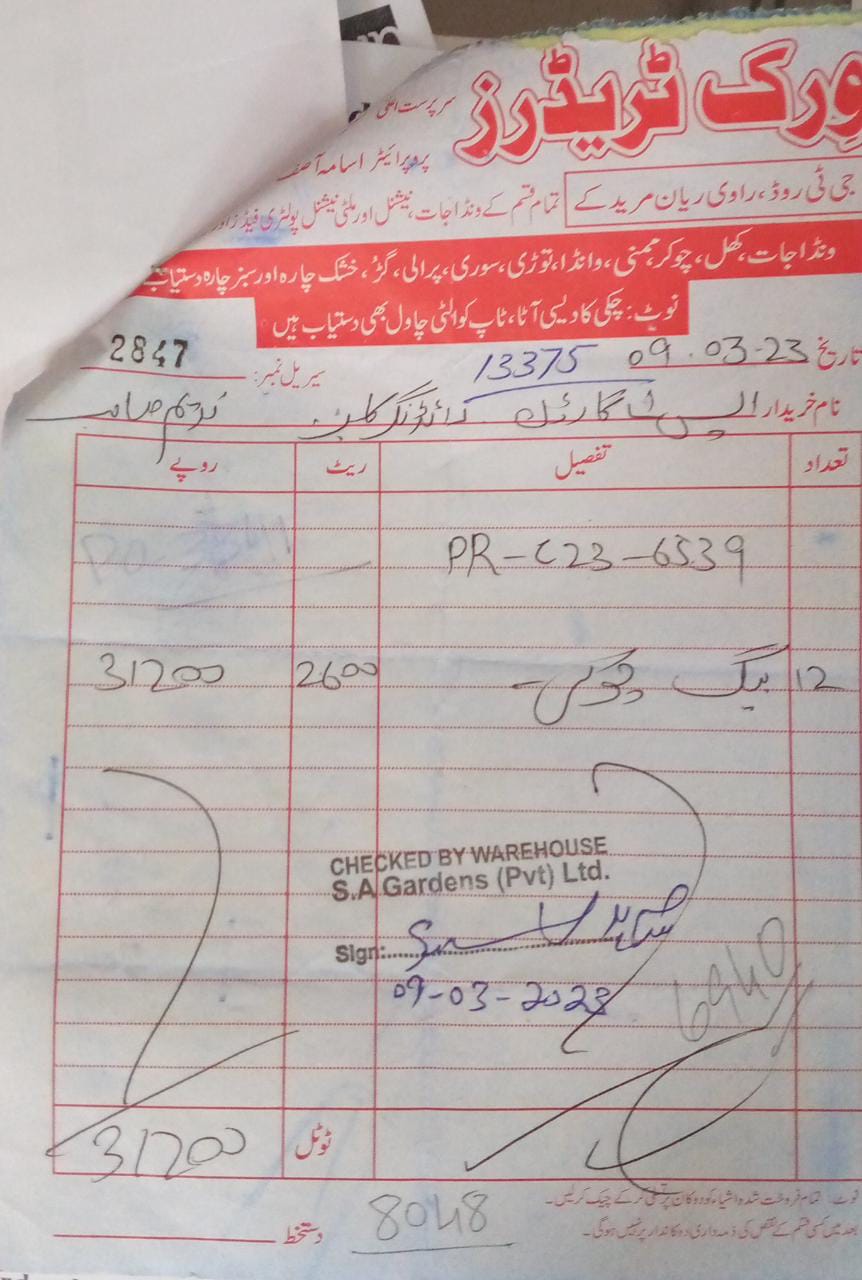 ورک ٹریڈرز
سرپرست اعلیٰ
پروپرائیٹر اسامہ آصف
جی ٹی روڈ، راوی ریان مریدکے
تمام قسم کے ونڈا جات، نیشنل اور ملٹی نیشنل پولٹری فیڈز اور
ونڈا جات، کھل، چوکر، ممنی، وانڈا، توڑی، سوری، پرالی، گڑ، خشک چارہ اور سبز چارہ دستیاب
نوٹ: چکی کا دیسی آٹا، ٹاپ کوالٹی چاول بھی دستیاب ہیں
تاریخ 09.03.23
13375
سیریل نمبر: 2847
نام خریدار ایس اے گارڈن رائڈنگ کلب ندیم صاحب
تعداد تفصیل ریٹ روپے
PR-C23-6539
12 بیگ چوکر 2600 31200
CHECKED BY WAREHOUSE
S.A Gardens (Pvt) Ltd.
Sign:
09-03-2023
6940
ٹوٹل 31200
نوٹ: تمام فروخت شدہ اشیاء کو دوکان پر تسلی کر کے چیک کر لیں۔
بعد میں کسی قسم کے نقص کی ذمہ داری دوکاندار پر نہیں ہوگی۔
دستخط
8048